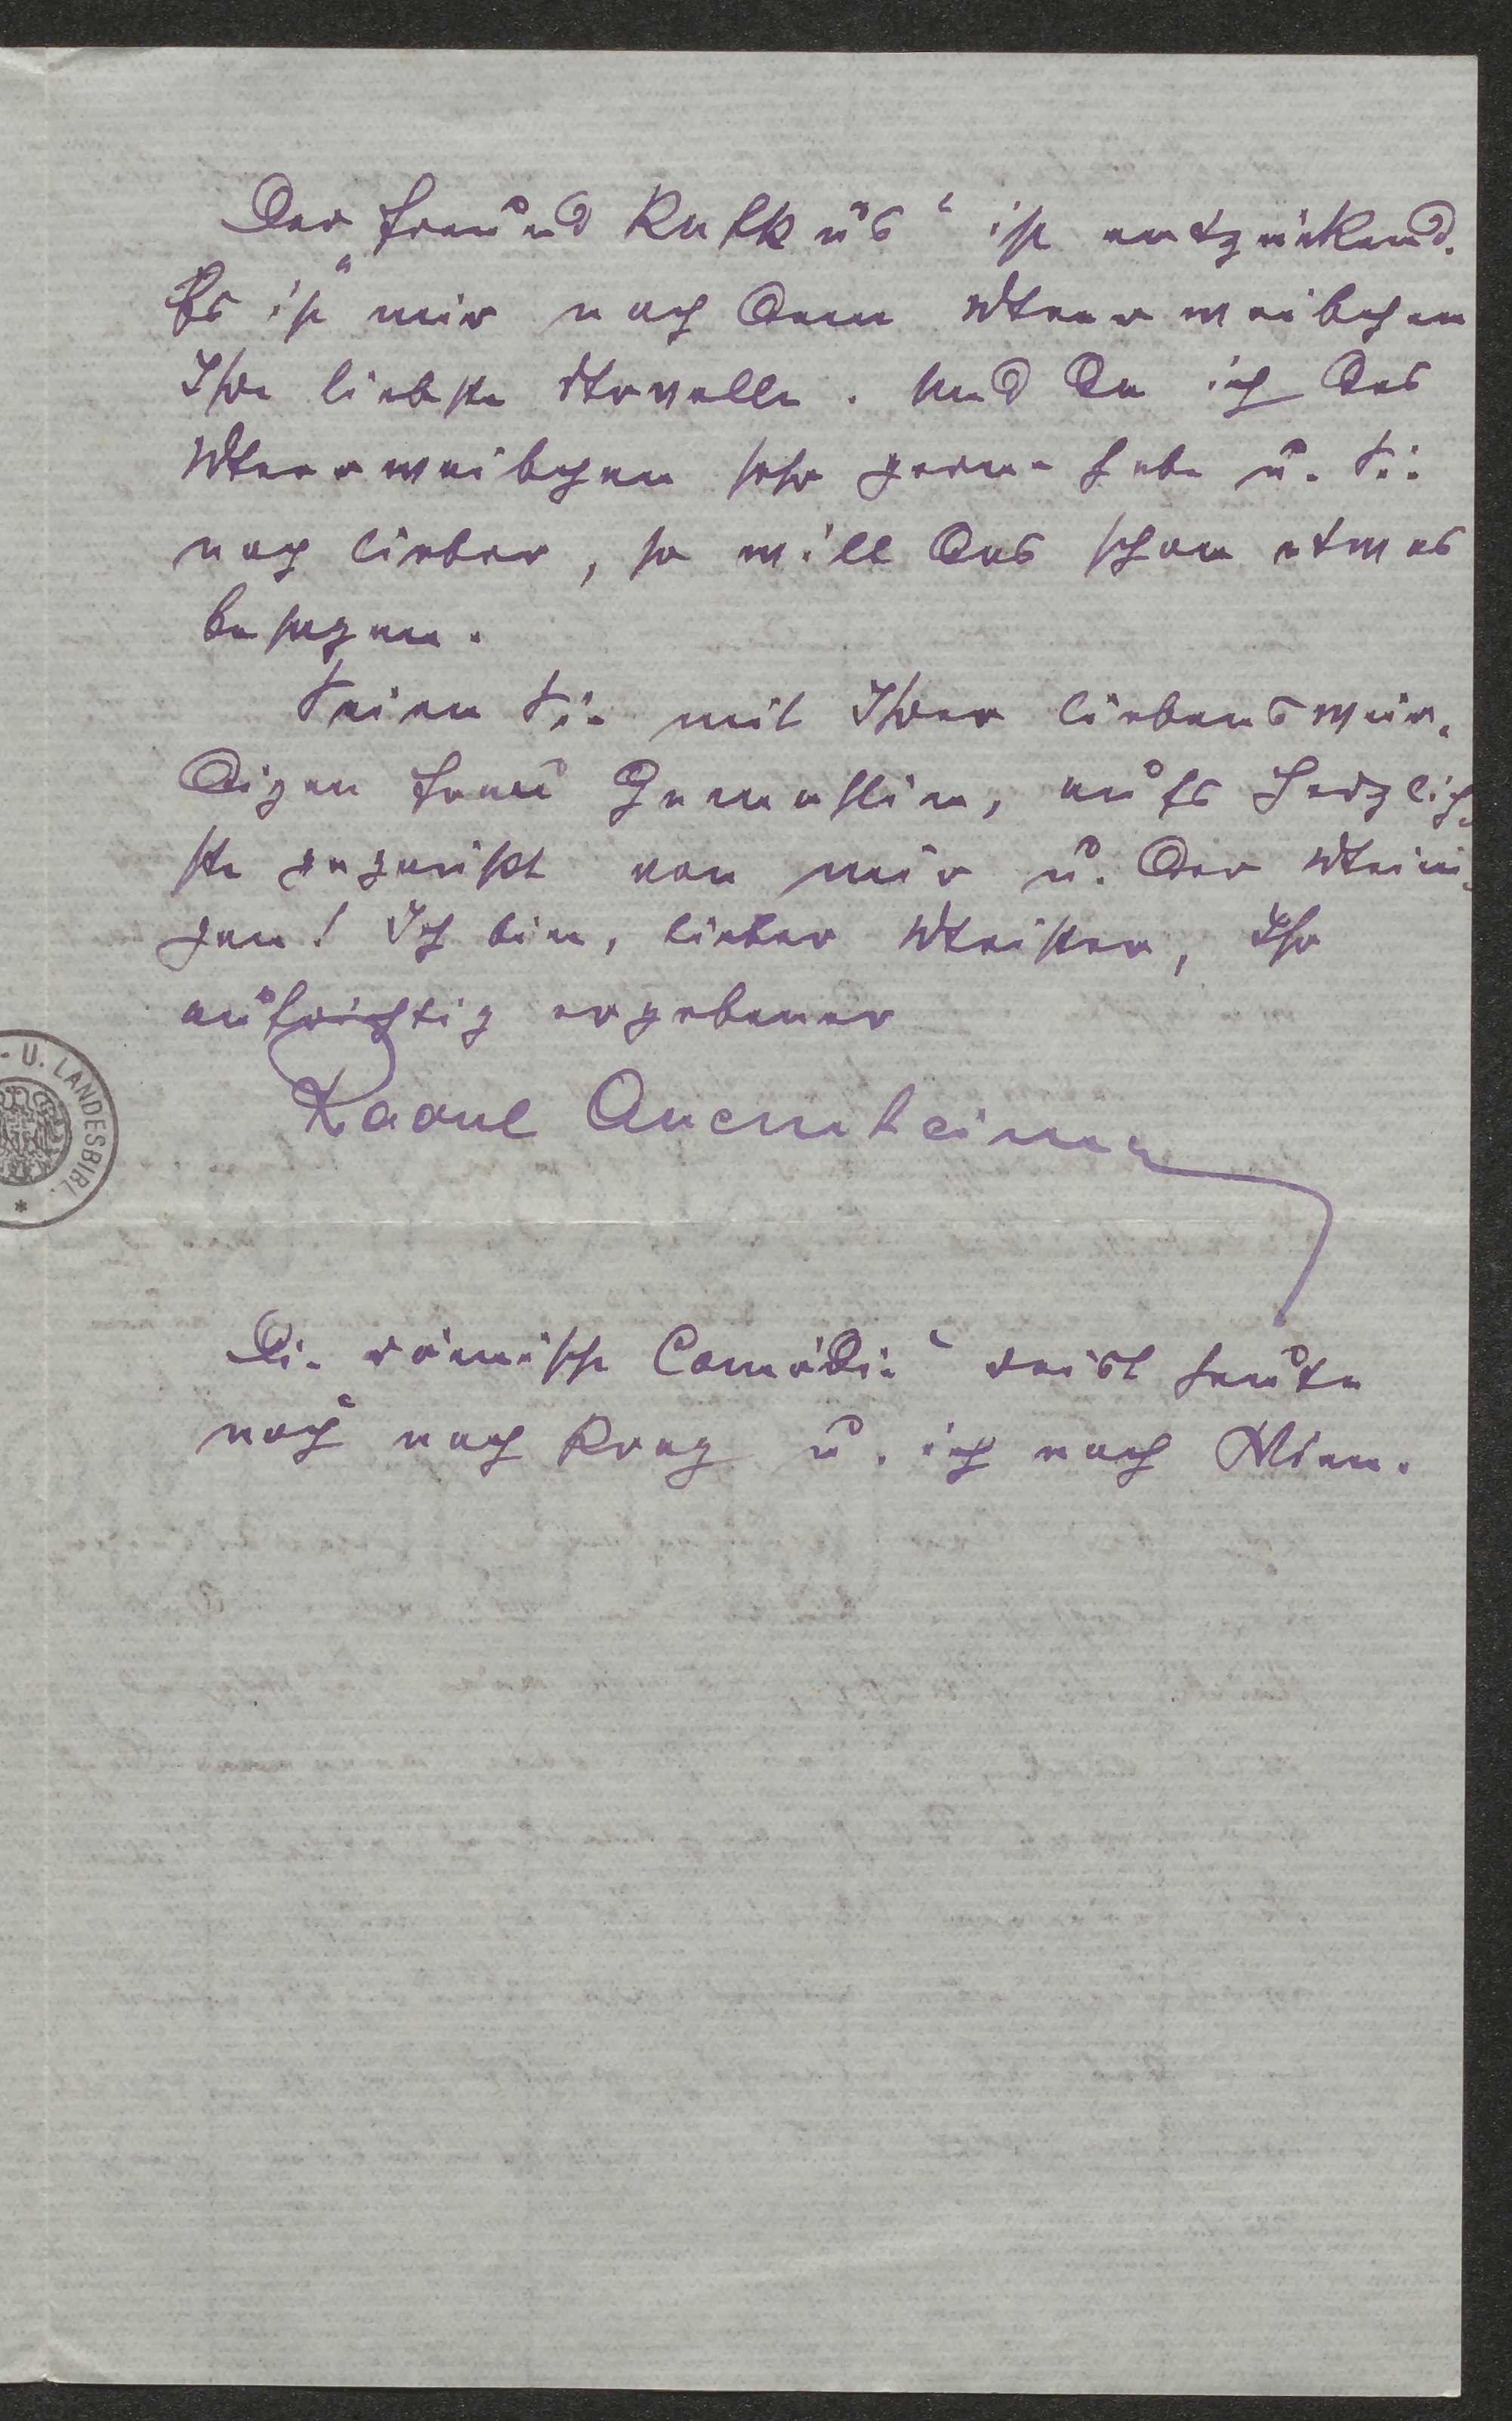 Der Freund Ratkus“ ist entzückend.
Es ist „mir nach dem Meerweibchen
Ihre liebste Novelle. Und da ich das
Meerweibchen sehr gerne habe u. Sie
noch lieber, so will das schon etwas
besagen.
Seien Sie mit Ihrer liebenswür-
digen Frau Gemahlin, aufs Herzlich-
ste gegrüßt von mir u. der Meini-
gen! Ich bin, lieber Meister, Ihr
aufrichtig ergebener
Raoul Auernheimer
Die römische Comödie“ reist heute
noch“ nach Prag u. ich nach Wien.
- U. LANDESBIBL. *